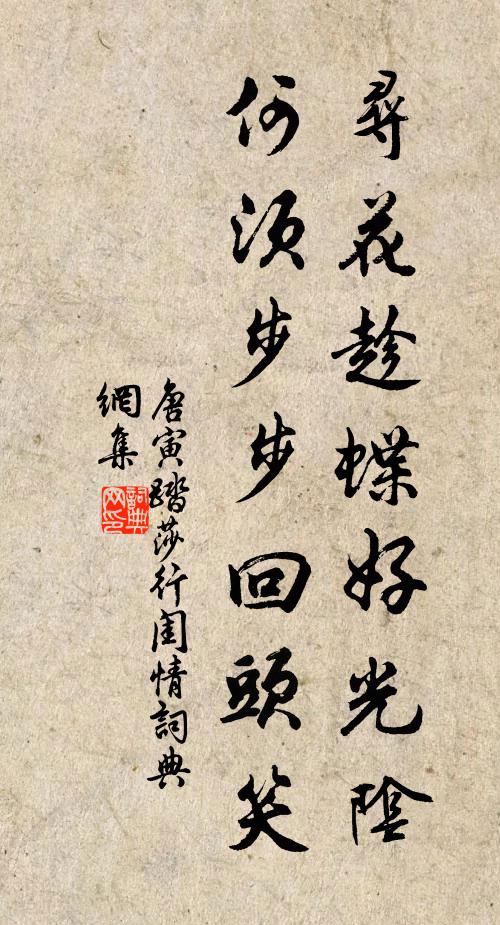 尋花趁蝶好光陰
何須步步回頭笑
唐寅踏莎行閨情詞典
網集
詞典
網印